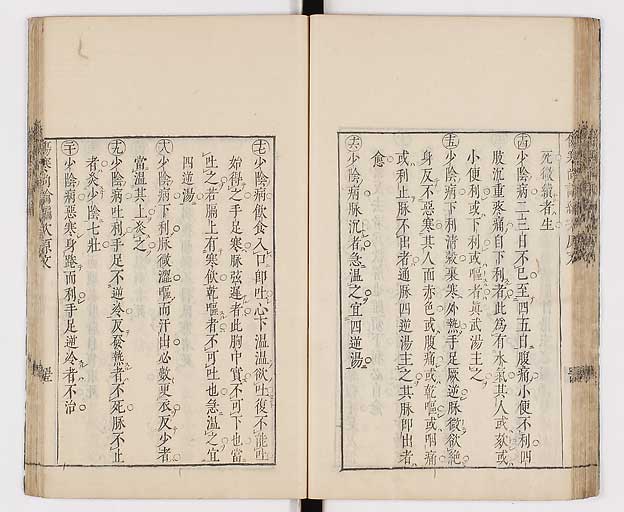 死微續者生
十四 少陰病二三日不已至四五日腹痛小便不利四
肢沉重疼痛自下利者此爲有水氣其人或欬或
小便利或下利或嘔者眞武湯主之
十五 少陰病下利清穀裏寒外熱手足厥逆脉微欲絶
身反不惡寒其人面赤色或腹痛或乾嘔或咽痛
或利止脉不出者通脉四逆湯主之其脉即出者
愈
十六 少陰病脉沉者急溫之宜四逆湯
十七 少陰病飲食入口即吐心下溫溫欲吐復不能吐
始得之手足寒脉弦遲者此胸中實不可下也當
吐之若膈上有寒飲乾嘔者不可吐也急溫之宜
四逆湯
十八 少陰病下利脉微澀嘔而汗出必數更衣反少者
當溫其上灸之
十九 少陰病吐利手足不逆冷反發熱者不死脉不止
者灸少陰七壯
二十 少陰病惡寒身踡而利手足逆冷者不治